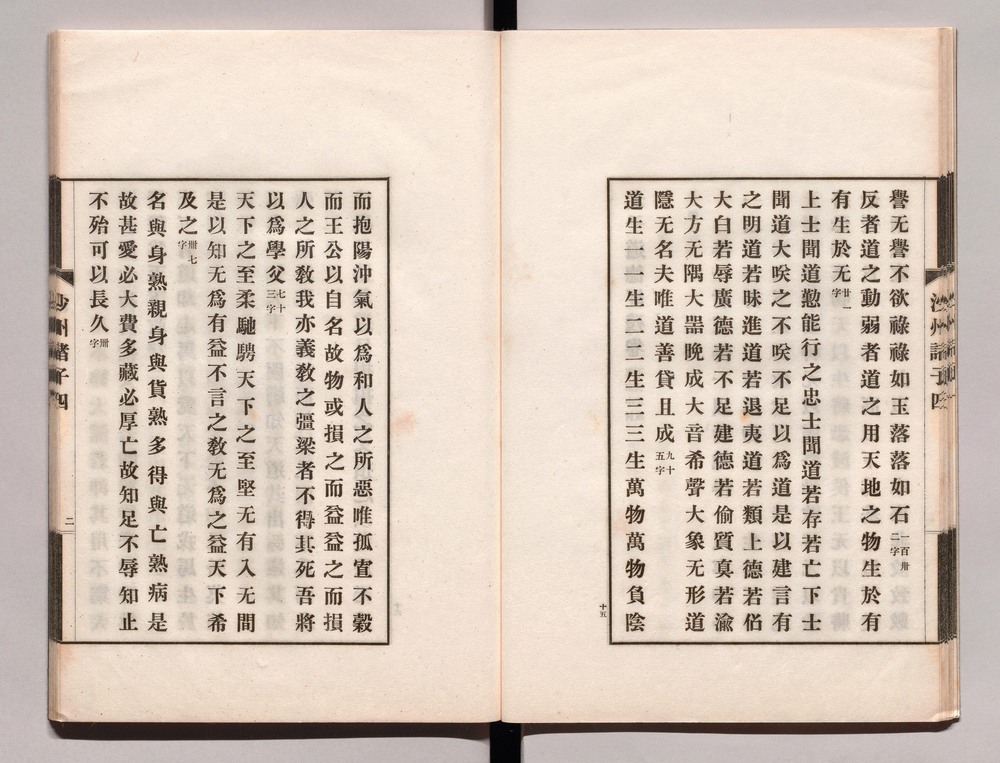 譽无譽不欲祿祿如玉落落如石一百卅二字
反者道之動弱者道之用天地之物生於有
有生於无廿一字
上士聞道懃能行之忠士聞道若存若亡下士
聞道大咲之不咲不足以為道是以建言有
之明道若昧進道若退夷道若類上德若俗
大白若辱廣德若不足建德若偷質真若渝
大方无隅大器晚成大音希聲大象无形道
隱无名夫唯道善貸且成九十五字
道生一一生二二生三三生萬物萬物負陰
十五
而抱陽沖氣以為和人之所惡唯孤寡不穀
而王公以自名故物或損之而益益之而損
人之所教我亦義教之彊梁者不得其死吾將
以為學父七十三字
天下之至柔馳騁天下之至堅无有入无間
是以知无為有益不言之教无為之益天下希
及之卌七字
名與身熟親身與貨熟多得與亡熟病是
故甚愛必大費多藏必厚亡故知足不辱知止
不殆可以長久卌字
沙州諸子四
二